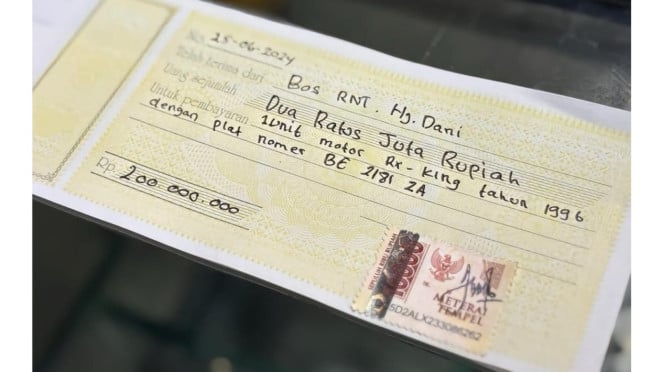 No. 25-06-2024
Telah terima dari Bos RNT. Hj. Dani
Uang sejumlah Dua Ratus Juta Rupiah
Untuk pembayaran 1 Unit motor Rx-King tahun 1996
dengan plat nomer BE 2181 ZA
Rp. 200.000.000
METERAI
TEMPEL
5D2ALX233086262